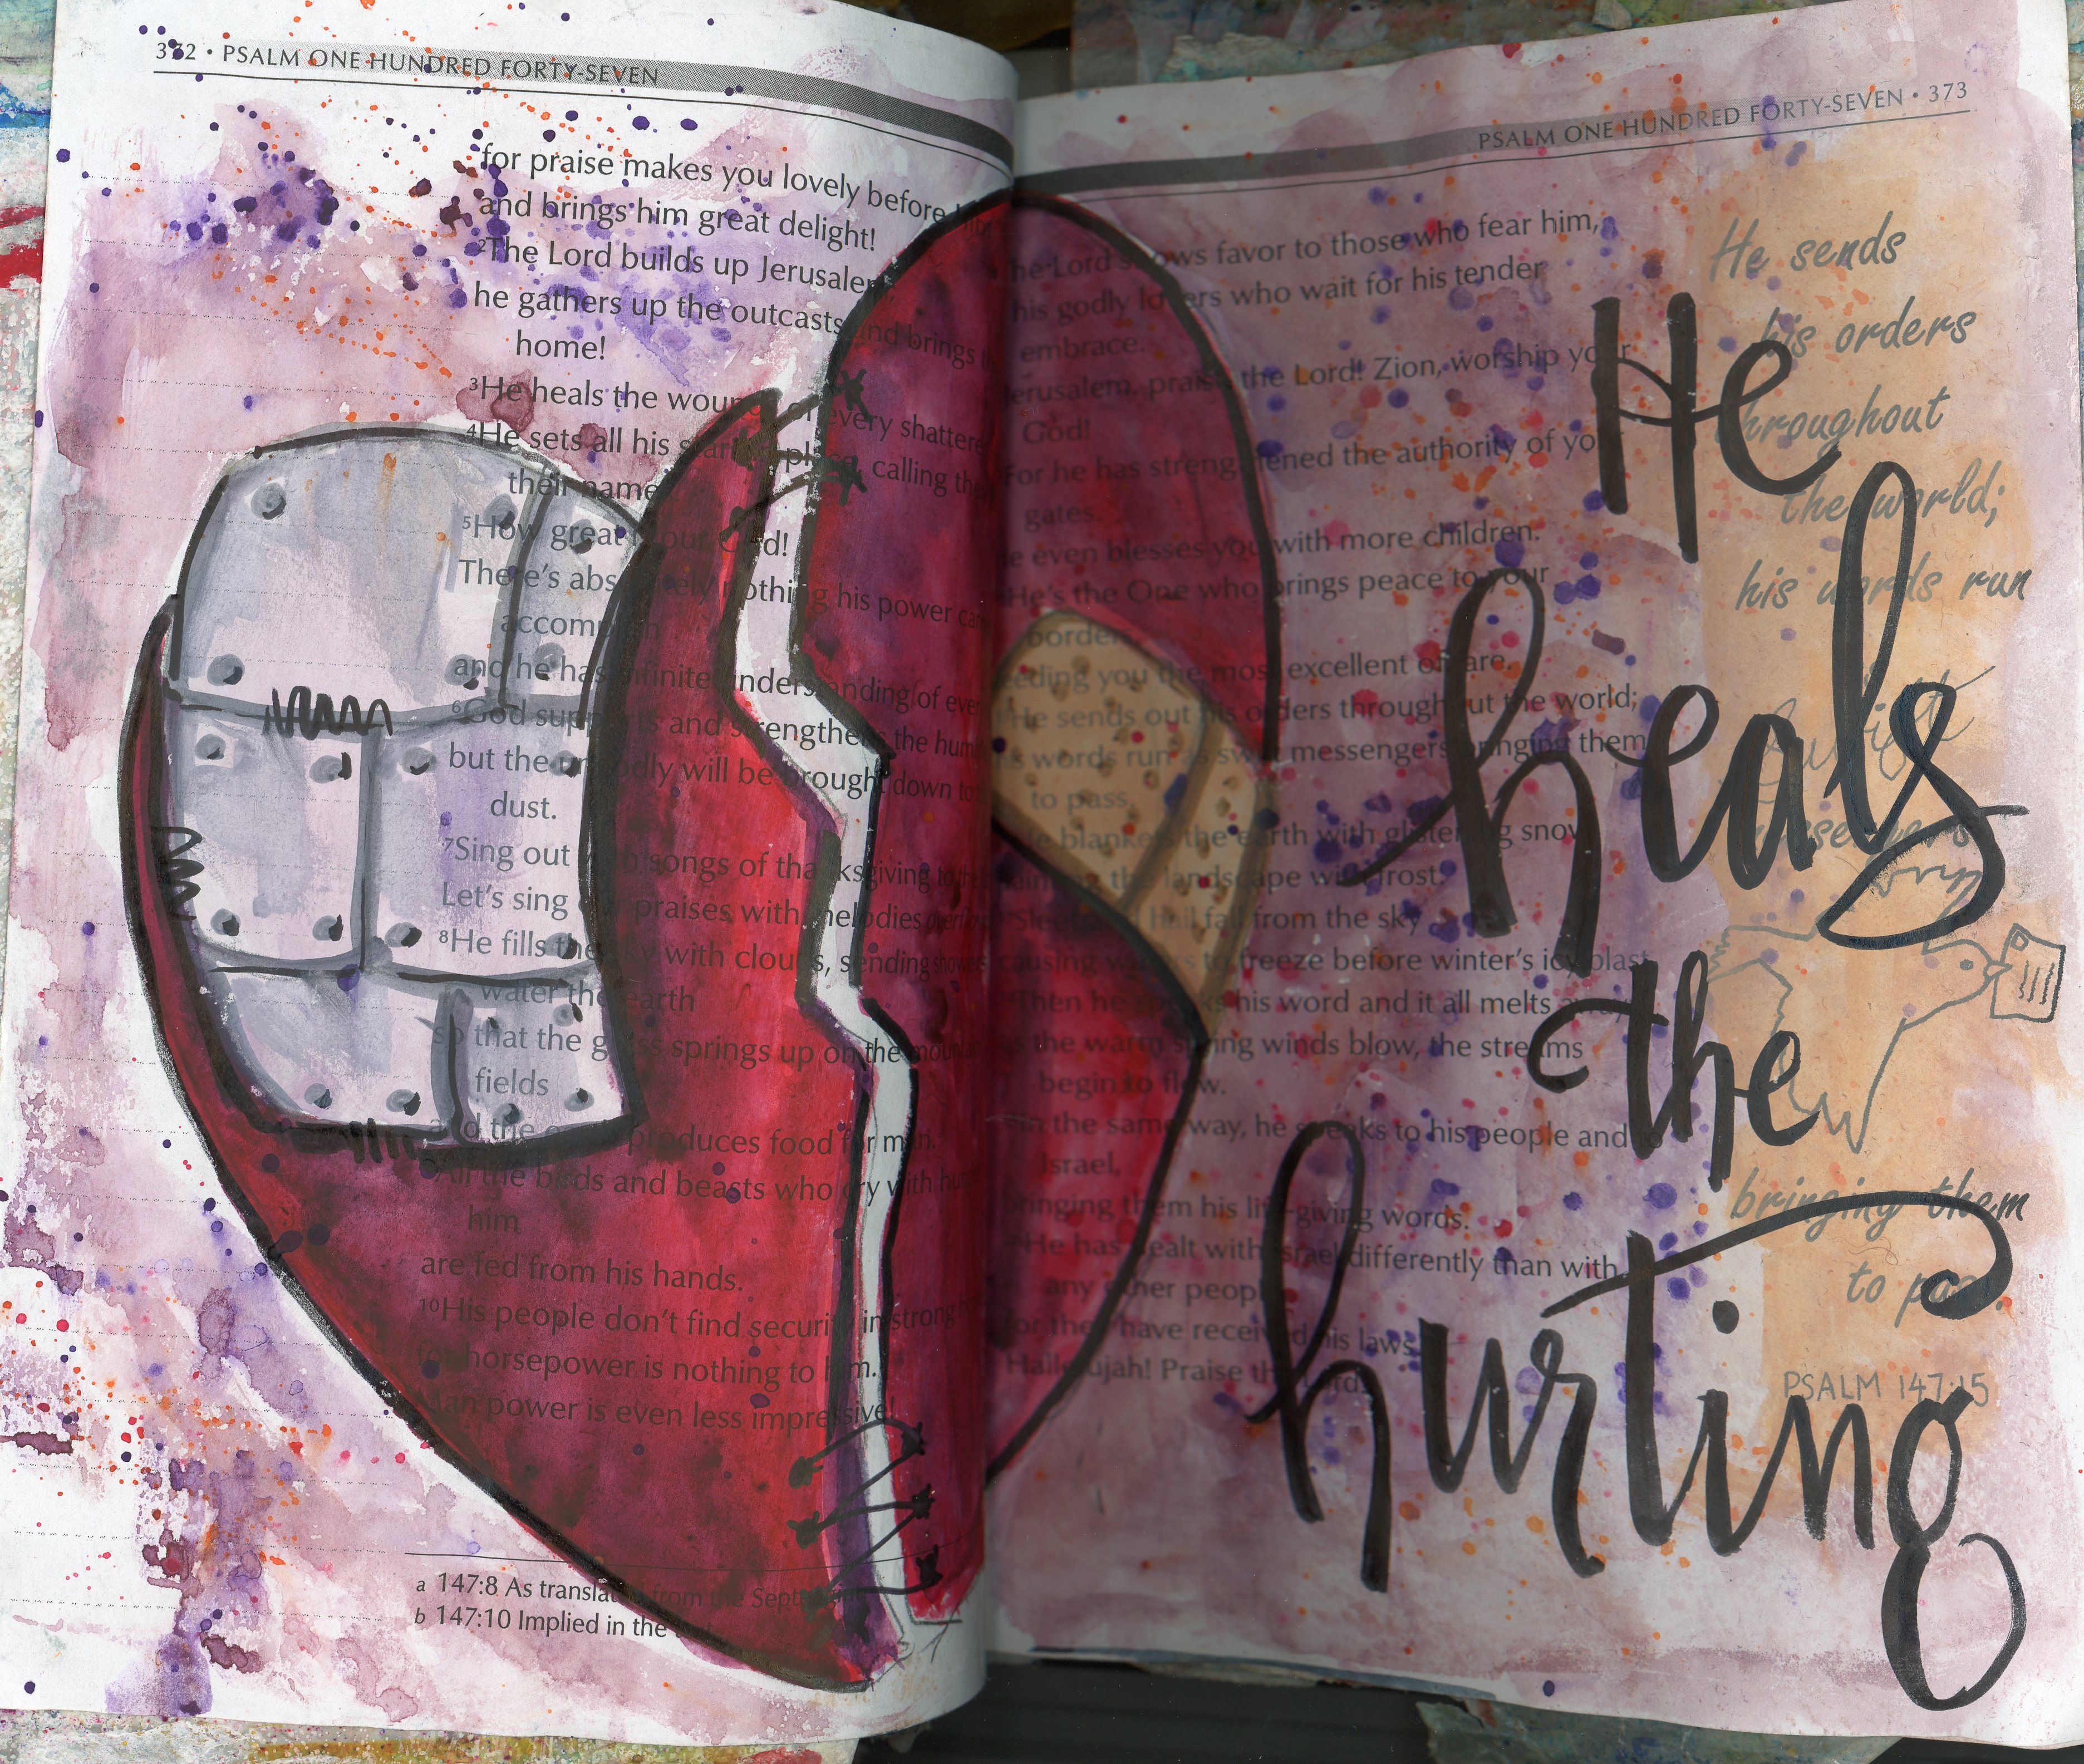 372 • PSALM ONE HUNDRED FORTY-SEVEN
for praise makes you lovely before him
and brings him great delight!
²The Lord builds up Jerusalem;
he gathers up the outcasts and brings
home!
³He heals the wounds of every shattered
⁴He sets all his stars in place, calling them
their names
⁵How great is our God!
There's absolutely nothing his power can
accomplish
and he has infinite understanding of
⁶God supports and strengthens the
but the ungodly will be brought down to
dust.
⁷Sing out with songs of thanksgiving to
Let's sing our praises with melodies
⁸He fills the sky with clouds, sending showers
water the earth
so that the grass springs up on the
fields
and the produces food for man.
⁹All the birds and beasts who cry with
him
are fed from his hands.
¹⁰His people don't find security in strong
for horsepower is nothing to him.
Man power is even less impressive!
a 147:8 As translated from the
b 147:10 Implied in the
PSALM ONE HUNDRED FORTY-SEVEN • 373
The Lord shows favor to those who fear him,
his godly lovers who wait for his tender
embrace.
Jerusalem, praise the Lord! Zion, worship your
God!
For he has strengthened the authority of your
gates.
He even blesses you with more children.
He's the One who brings peace to your
borders
feeding you the most excellent of fare.
He sends out his orders throughout the world;
his words run as swift messengers bringing them
to pass.
He blankets the earth with glistening snow
the landscape with frost.
Sleet and hail fall from the sky
causing waters to freeze before winter's icy blast.
Then he speaks his word and it all melts
as the warm spring winds blow, the streams
begin to flow.
In the same way, he speaks to his people and
Israel,
bringing them his life-giving words.
He has dealt with Israel differently than with
any other people
for they have received his laws.
Hallelujah! Praise the Lord
He sends
his orders
throughout
the world;
his words run
bringing them
to pass.
PSALM 147:15
He
heals
the
hurting